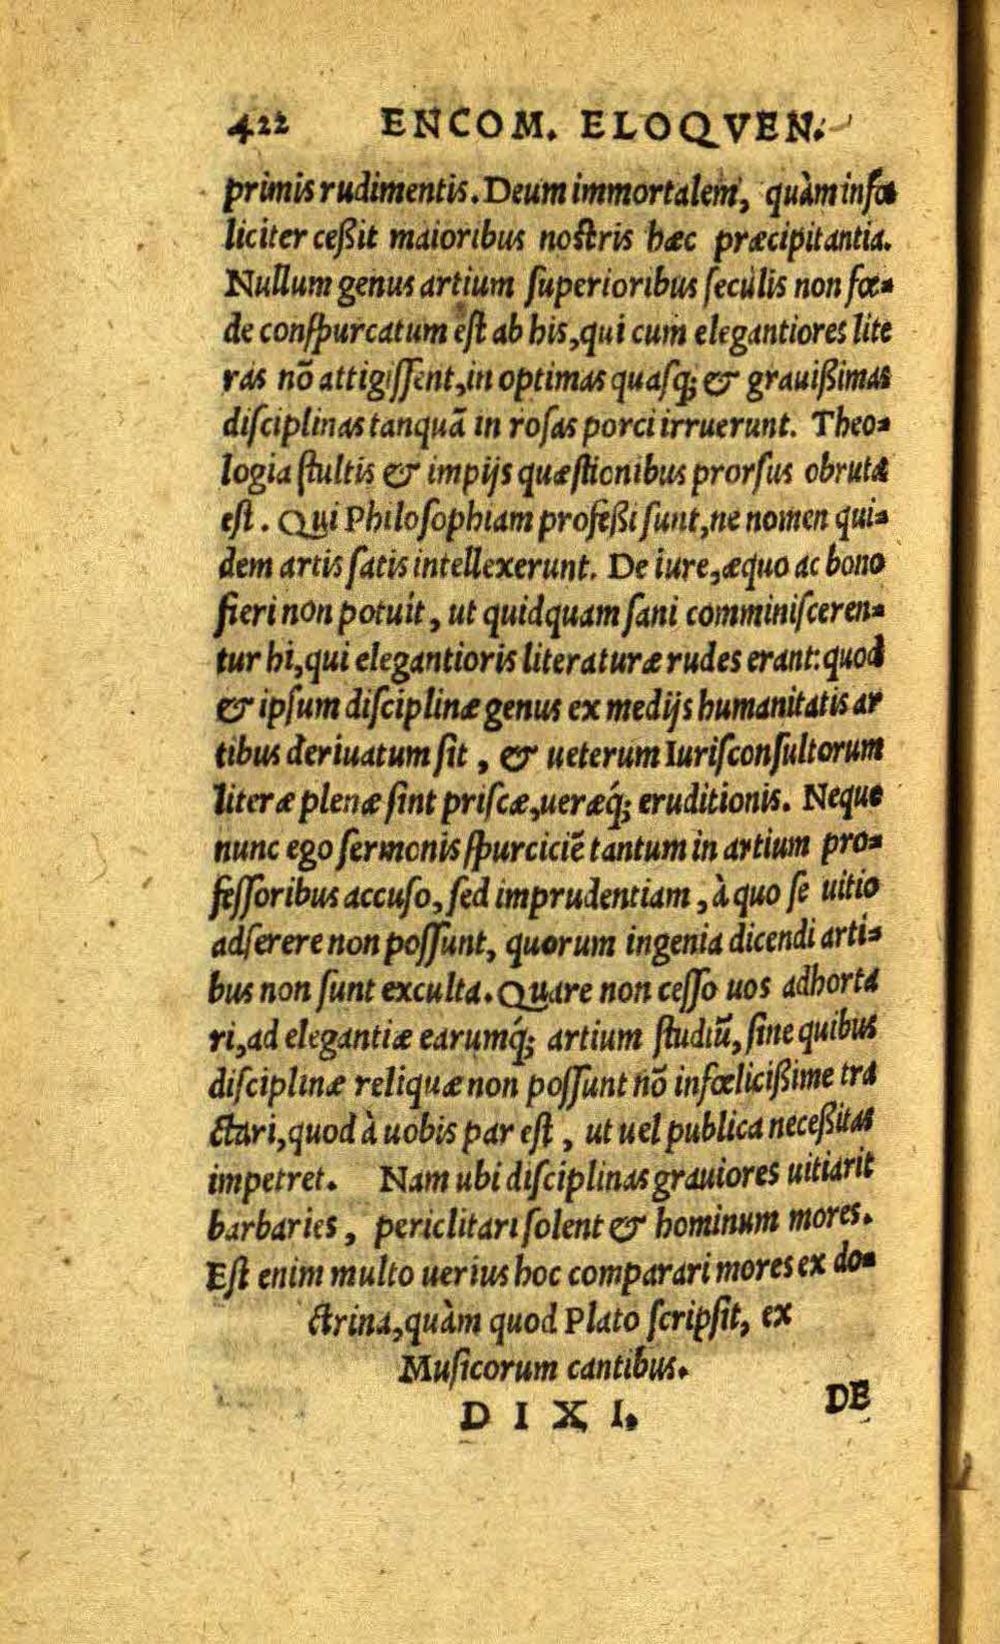 422 ENCOM. ELOQVEN.
primis rudimentis. Deum immortalem, quàm infœ
liciter ceßit maioribus nostris hæc præcipitantia.
Nullum genus artium ſuperioribus ſeculis non fœ=
de conſpurcatum eſt ab his, qui cum elegantiores lite
ras nõ attigiſſent, in optimas quaſq; & grauißimas
diſciplinas tanquã in roſas porci irruerunt. Theo=
logia ſtultis & impijs quæſtionibus prorſus obruta
eſt. Qui Philoſophiam profeßi ſunt, ne nomen qui=
dem artis ſatis intellexerunt. De iure, æquo ac bono
fieri non potuit, ut quidquam ſani comminiſceren=
tur hi, qui elegantioris literaturæ rudes erant: quod
& ipſum diſciplinæ genus ex medijs humanitatis ar
tibus deriuatum ſit, & ueterum Iuriſconſultorum
literæ plenæ ſint priſcæ, ueræq́; eruditionis. Neque
nunc ego ſermonis ſpurciciẽ tantum in artium pro=
feſſoribus accuſo, ſed imprudentiam, à quo ſe uitio
adſerere non poſſunt, quorum ingenia dicendi arti=
bus non ſunt exculta. Quare non ceſſo uos adhorta
ri, ad elegantiæ earumq́; artium ſtudiũ, ſine quibus
diſciplinæ reliquæ non poſſunt nõ infœlicißime tra
ctari, quod à uobis par eſt, ut uel publica neceßitas
impetret. Nam ubi diſciplinas grauiores uitiarit
barbaries, periclitari ſolent & hominum mores.
Eſt enim multo uerius hoc comparari mores ex do=
ctrina, quàm quod Plato ſcripſit, ex
Muſicorum cantibus.
DIXI.
DE